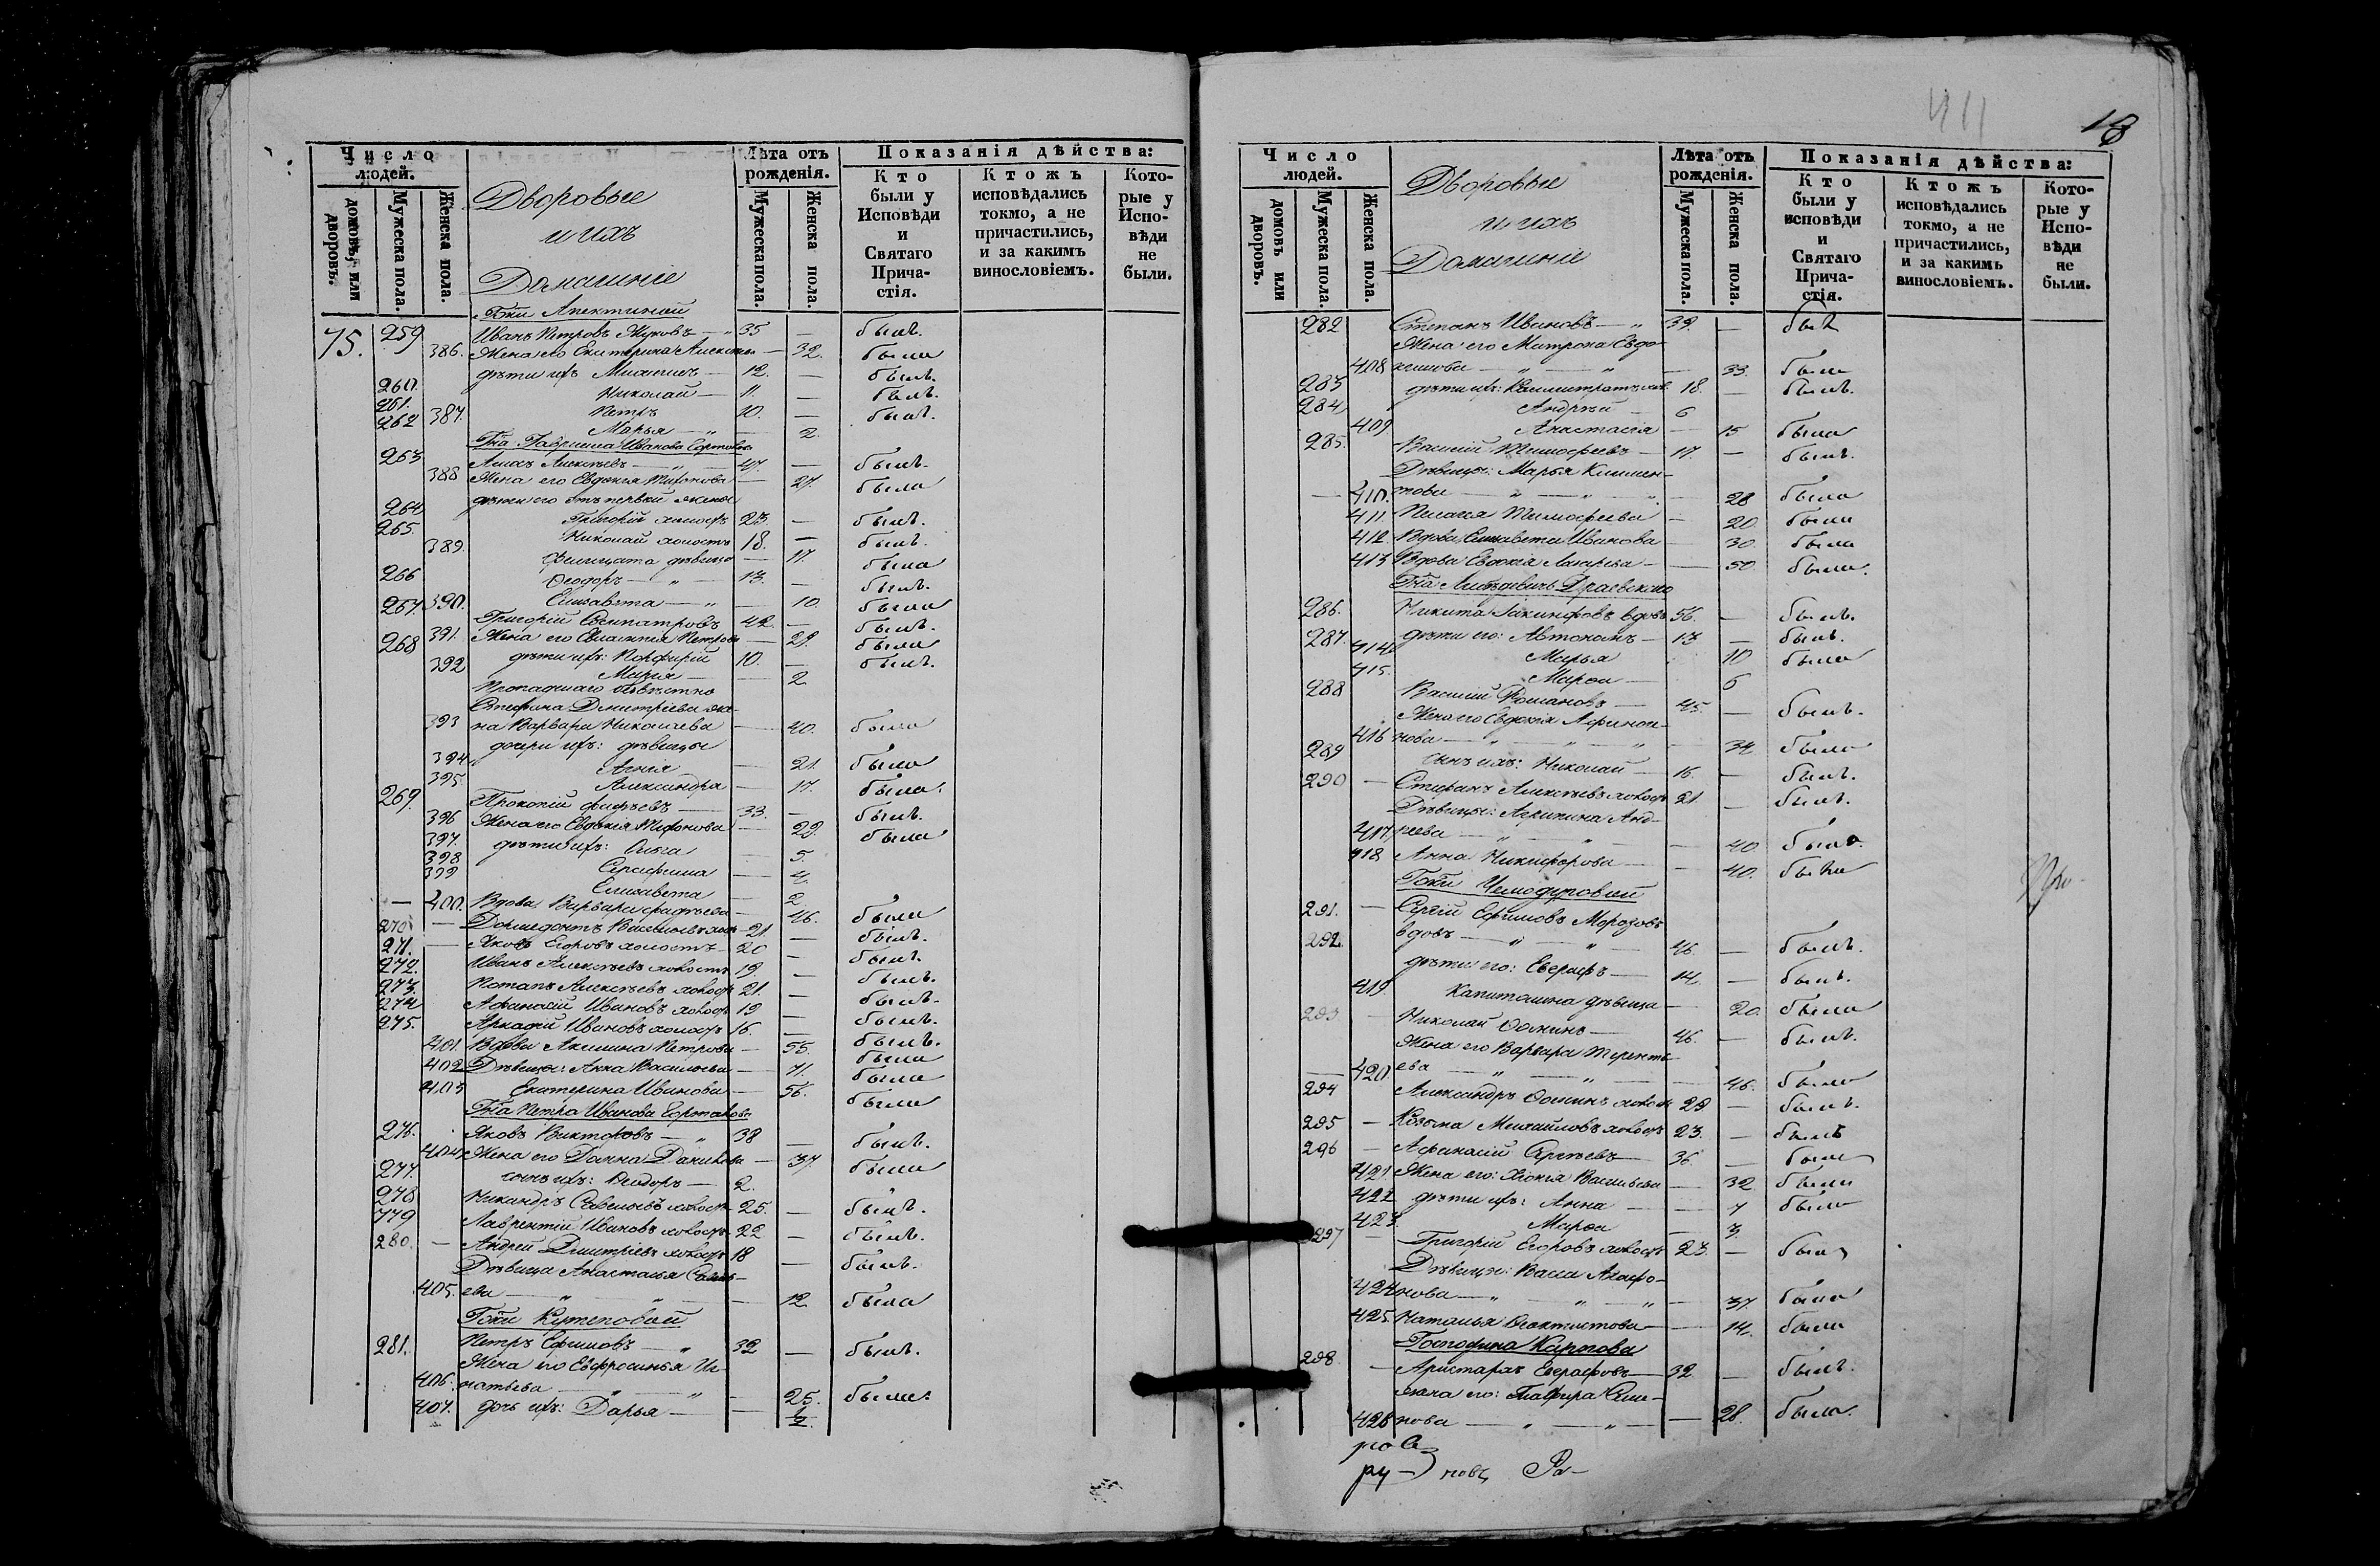 Число людей.
домовъ, или дворовъ.
Мужеска пола.
Женска пола.
Дворовые
и ихъ
Домашніе
Лѣта отъ рожденія.
Мужеска пола.
Женска пола.
Показанія дѣйства:
Кто были у Исповѣди и Святаго Причастія.
Ктожъ исповѣдались токмо, а не причастились, и за какимъ винословіемъ.
Которые у Исповѣди не были.
75. 259 Иванъ Петровъ Жуковъ — 35 — былъ.
386. Жена его Екатерина — 32. была
260. дѣти ихъ 12. — былъ.
261. Николай — 11. — былъ.
262 Петръ 10. — былъ.
387. Марья — 2.
Гна Гавриила Иванова
263 Алексѣевъ 47. — былъ.
388 Жена его Евдокія — 27. была
дѣти его отъ первой жены
264 Григорій холостъ 23. — былъ.
265. Николай холостъ 18. — былъ.
389. Фелицата дѣвица — 17. была
266 Ѳеодоръ — 13. — былъ.
390. Елисавета — 10. была
267. Григорій 42. — былъ.
391. Жена его Петрова — 29. была
268 дѣти ихъ: Порфирій 10. — былъ.
392 Марія — 2
Пропавшаго безвѣстно
Стефана Дмитріева же-
393 на Варвара Николаева — 40. была
дочери ихъ: дѣвицы
394 — 21. была
395. Александра — 17. была.
269. Прокопій 33. — былъ.
396 Жена его Евдокія — 29. была
397. дѣти ихъ: Ольга — 5.
398 Серафима — 4.
399 Елисавета — 2
400. Вдова Варвара — 46. была
270 21. — былъ.
271. Яковъ Егоровъ холостъ — 20 — былъ.
272. Иванъ Алексѣевъ холостъ 19. — былъ.
273. Потапъ Алексѣевъ холостъ 21. — былъ.
274 Афанасій Ивановъ холостъ 19 — былъ.
275. Аркадій Ивановъ холостъ 16. — былъ.
401. Вдова Акилина Петрова — 55. была
402 Дѣвицы: Анна Васильева — 71. была
403 Екатерина Иванова — 56. была
Гна Петра Иванова
276. Яковъ Викторовъ 38 — былъ.
404. Жена его Домна Данилова — 37. была
277. сынъ ихъ: Ѳеодоръ — 2.
278 Никандръ Савельевъ холостъ 25. — былъ.
279 Лаврентій Ивановъ холостъ 22 — былъ.
280. Андрей Дмитріевъ холостъ 18 — былъ.
Дѣвица Анастасья
405. ева — 12. была
Гожи Кутеповой
281. Петръ Ефимовъ — 32 — былъ.
Жена его Евфросинья Иг-
406. натьева — 25. была.
407. дочь ихъ: Дарья — ½.
411
18
Число людей.
домовъ или дворовъ.
Мужеска пола.
Женска пола.
Дворовые
и ихъ
Домашніе
Лѣта отъ рожденія.
Мужеска пола.
Женска пола.
Показанія дѣйства:
Кто были у исповѣди и Святаго Причастія.
Ктожъ исповѣдались токмо, а не причастились, и за какимъ винословіемъ.
Которые у Исповѣди не были.
282 Степанъ Ивановъ — 39 — былъ
Жена его Матрона Евдо-
408 кимова — 33. была
283 дѣти ихъ: Каллистратъ 18. — былъ.
284 Андрей 6
409 Анастасія — 15 была
285. Василій Тимофеевъ — 17. — былъ.
Дѣвицы: Марья Климен-
410. това — 28 была
411. Пелагея Тимофеева — 20. была
412. Вдова Елисавета Иванова — 30. была
413 Вдова Евдокія Лазарева — 50 была.
286. Никита Іакинфовъ вдовъ 56. — былъ.
287. дѣти его: Автономъ — 13 — былъ.
414 Марья 10 была
415. Марѳа — 6
288 Василій Романовъ — 45. — былъ.
Жена его Евдокія
416 нова — 34 была
289 сынъ ихъ: Николай — 16. — былъ.
290 — Стефанъ Алексѣевъ холостъ 21. — былъ.
Дѣвицы: Агрипина Анд-
417. реева — 40 была.
418 Анна Никифорова — 40. была
Гожи Чемодуровой
291. — Сергій Ефимовъ Морозовъ
292. вдовъ — 46. — былъ.
дѣти его: Евграфъ — 14. — былъ.
419. Капитолина дѣвица — 20. была
293 — Николай Ѳоминъ — 46. — былъ.
Жена его Варвара Теренть-
420. ева — 46. была
294 Александръ Ѳоминъ холостъ 29 — былъ.
295 — Козьма Михайловъ холостъ 23. — былъ
296 — Афанасій Сергѣевъ — 36. — былъ
421 Жена его: Хіонія Васильева — 32. была
422 дѣти ихъ: Анна — 7 была
423. Марѳа — 3.
297 — Григорій Егоровъ холостъ 23. — былъ
Дѣвицы: Васса Агафо-
424 нова — 37. была
425. Наталья Ѳеоктистова — 14. была
Господина Карпова
298. — Аристархъ Евграфовъ — 32 — былъ.
жена его: Глафира Сем-
426 нова — 28. была.